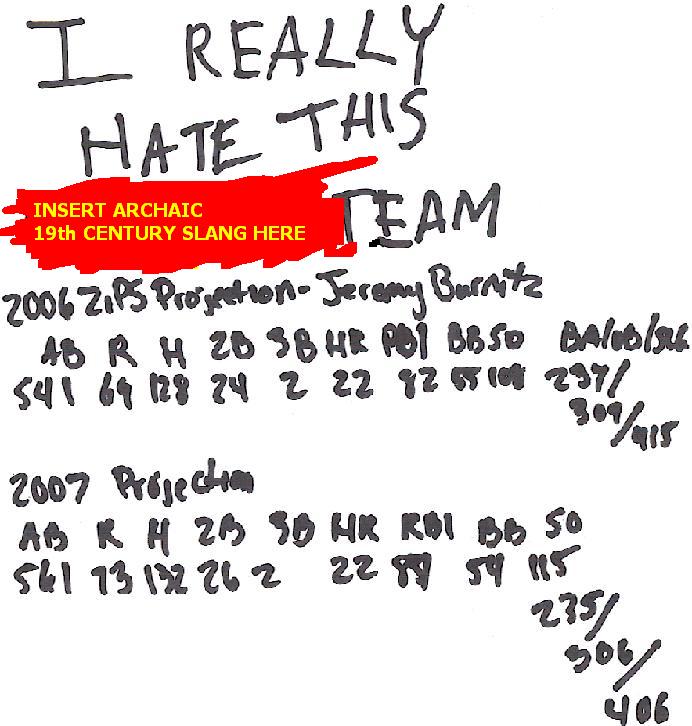 I REALLY
HATE THIS
INSERT ARCHAIC
19th CENTURY SLANG HERE
TEAM
2006 ZiPS Projection - Jeromy Burnitz
AB R H 2B 3B HR RBI BB SO BA/OB/SLG
541 69 128 24 2 22 82 55 108 237/
309/415
2007 Projection
AB R H 2B 3B HR RBI BB SO
561 73 132 26 2 22 54 115
235/
306/
406